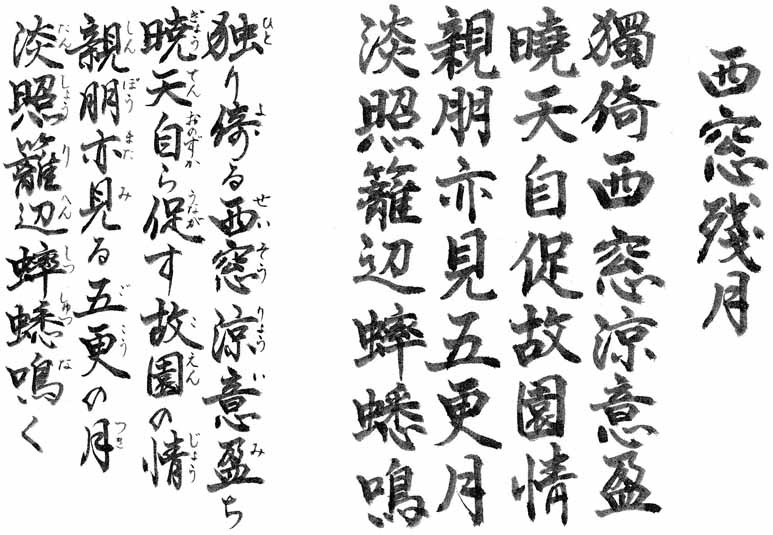 西窓殘月
獨倚西窓涼意盈
曉天自促故園情
親朋亦見五更月
淡照籬辺蟀蟋鳴
独り倚る西窓涼意盈ち
ひと よ せい そう りょう い み
暁天自ら促す故園の情
ぎょう てん おのずか うなが こ えん じょう
親朋亦見る五更の月
しん ぼう また み ご こう つき
淡照籬辺蟀蟋鳴く
たん しょう り へん しつ しゅつ な